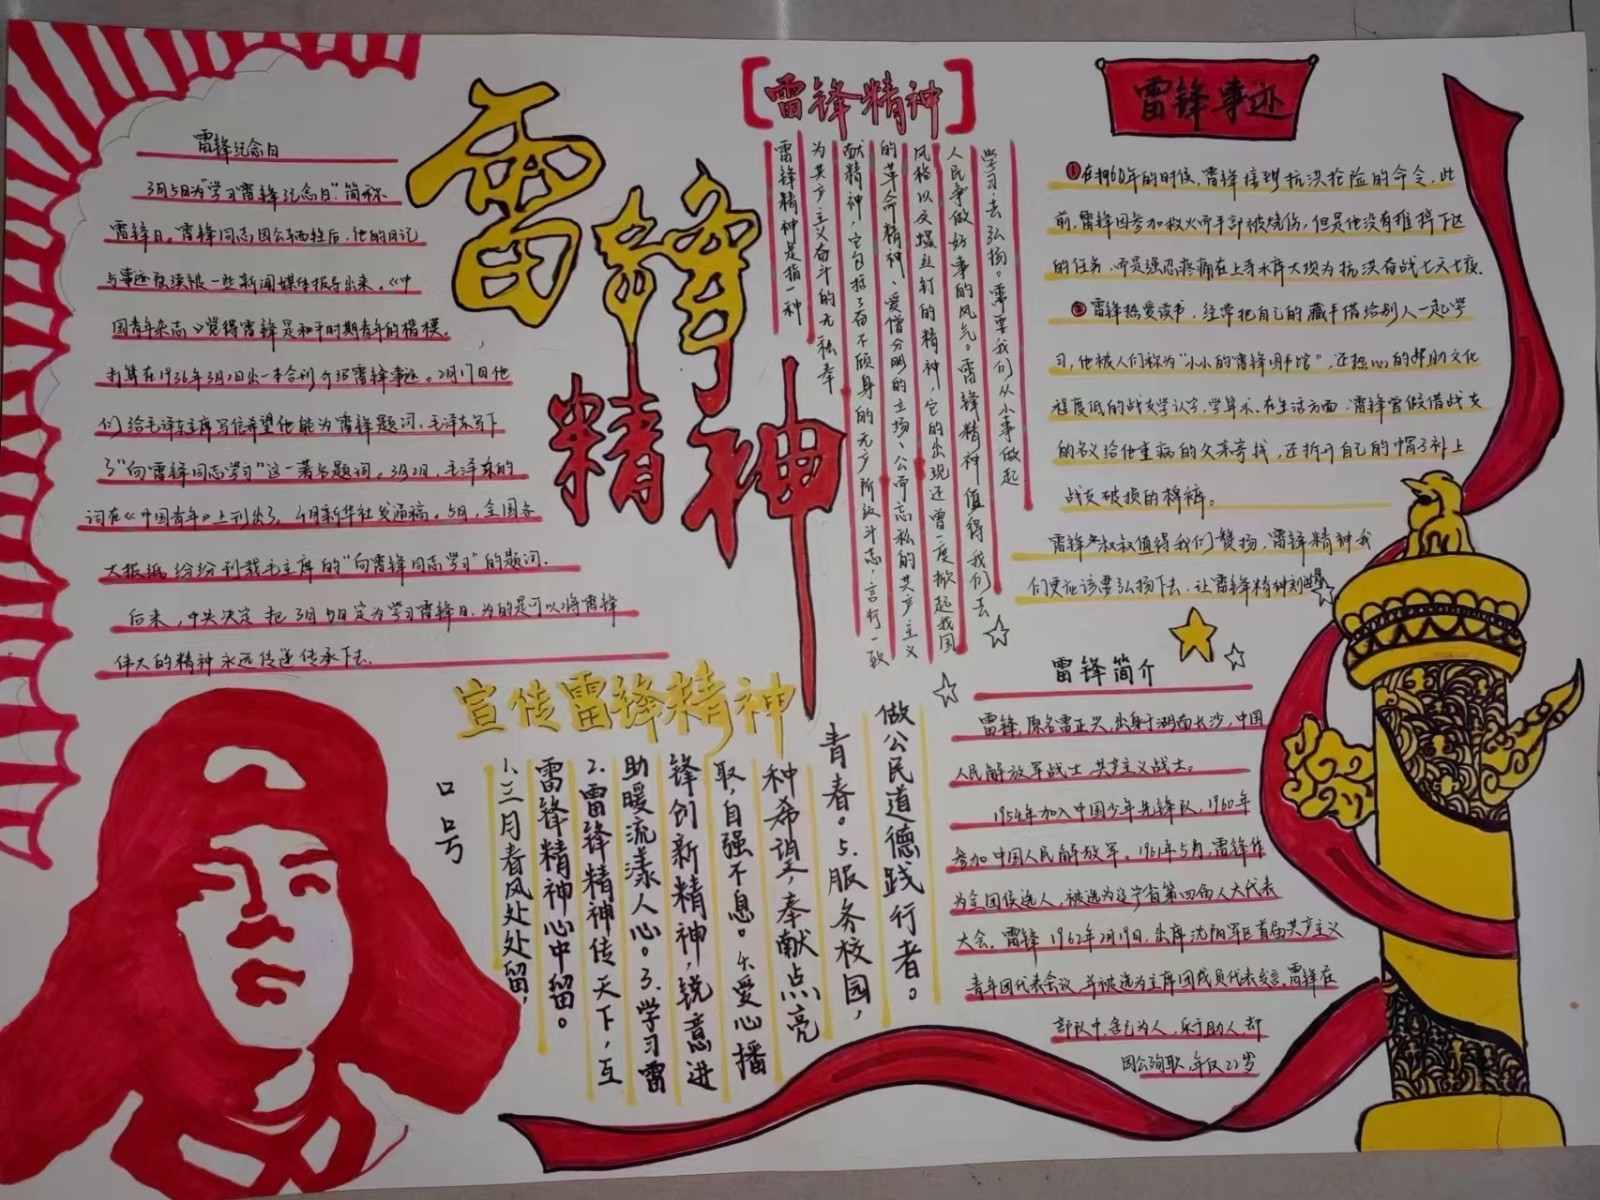 雷锋精神
雷锋纪念日
3月5日为"学习雷锋纪念日"简称
雷锋日。雷锋同志因公牺牲后,他的日记
与事迹陆续被一些新闻媒体报导出来。《中
国青年杂志》觉得雷锋是和平时期青年的楷模。
打算在1936年3月2日出一本合刊介绍雷锋事迹。2月17日他
们给毛泽东主席写信希望他能为雷锋题词,毛泽东写下
了"向雷锋同志学习"这一著名题词。3月2日,毛泽东的
词在《中国青年》上刊出了。4月新华社发通稿。5月,全国各
大报纸纷纷刊载毛主席的"向雷锋同志学习"的题词.
后来,中央决定把3月5日定为学习雷锋日.为的是可以将雷锋
伟大的精神永远传递传承下去.
[雷锋精神]
雷锋精神是指一种
为共产主义奋斗的无私奉
献精神,它包括了奋不顾身的无产阶级斗志,言行一致
的革命精神、爱憎分明的立场、公而忘私的共产主义
风格以及螺丝钉的精神,它的出现还曾一度掀起我国
人民争做好事的风气。雷锋精神值得我们去
学习,去弘扬。需要我们从小事做起
雷锋事迹
①在1960年的时候,雷锋接到抗洪抢险的命令,此
前,雷锋因参加救火而手部被烧伤,但是他没有推掉下达
的任务,而是强忍疼痛在上寺水库大坝为抗洪奋战七天七夜.
②雷锋热爱读书,经常把自己的藏书借给别人一起学
习,他被人们称为"小小的雷锋图书馆",还热心的帮助文化
程度低的战友学认字,学算术.在生活方面,雷锋曾假借战友
的名义给他重病的父亲寄钱,还拆开自己的帽子补上
战友破损的棉裤。
雷锋叔叔值得我们赞扬,雷锋精神我
们更应该要弘扬下去,让雷锋精神
雷锋简介
雷锋,原名雷正兴,出身于湖南长沙,中国
人民解放军战士 共产主义战士。
1954年加入中国少年先锋队,1960年
参加中国人民解放军。1961年5月,雷锋作
为全团候选人,被选为辽宁省第四届人大代表
大会。雷锋1962年2月19日,出席沈阳军区首届共产主义
青年团代表会议,并被选为主席团成员代表发言,雷锋在
部队中,舍己为人,乐于助人,却
因公殉职,年仅22岁
宣传雷锋精神
口号
1.三月春风处处留,
雷锋精神心中留。
2.雷锋精神传天下,互
助暖流漾人心。3.学习雷
锋创新精神,锐意进
取,自强不息。4.爱心播
种希望,奉献点亮
青春。5.服务校园,
做公民道德践行者。